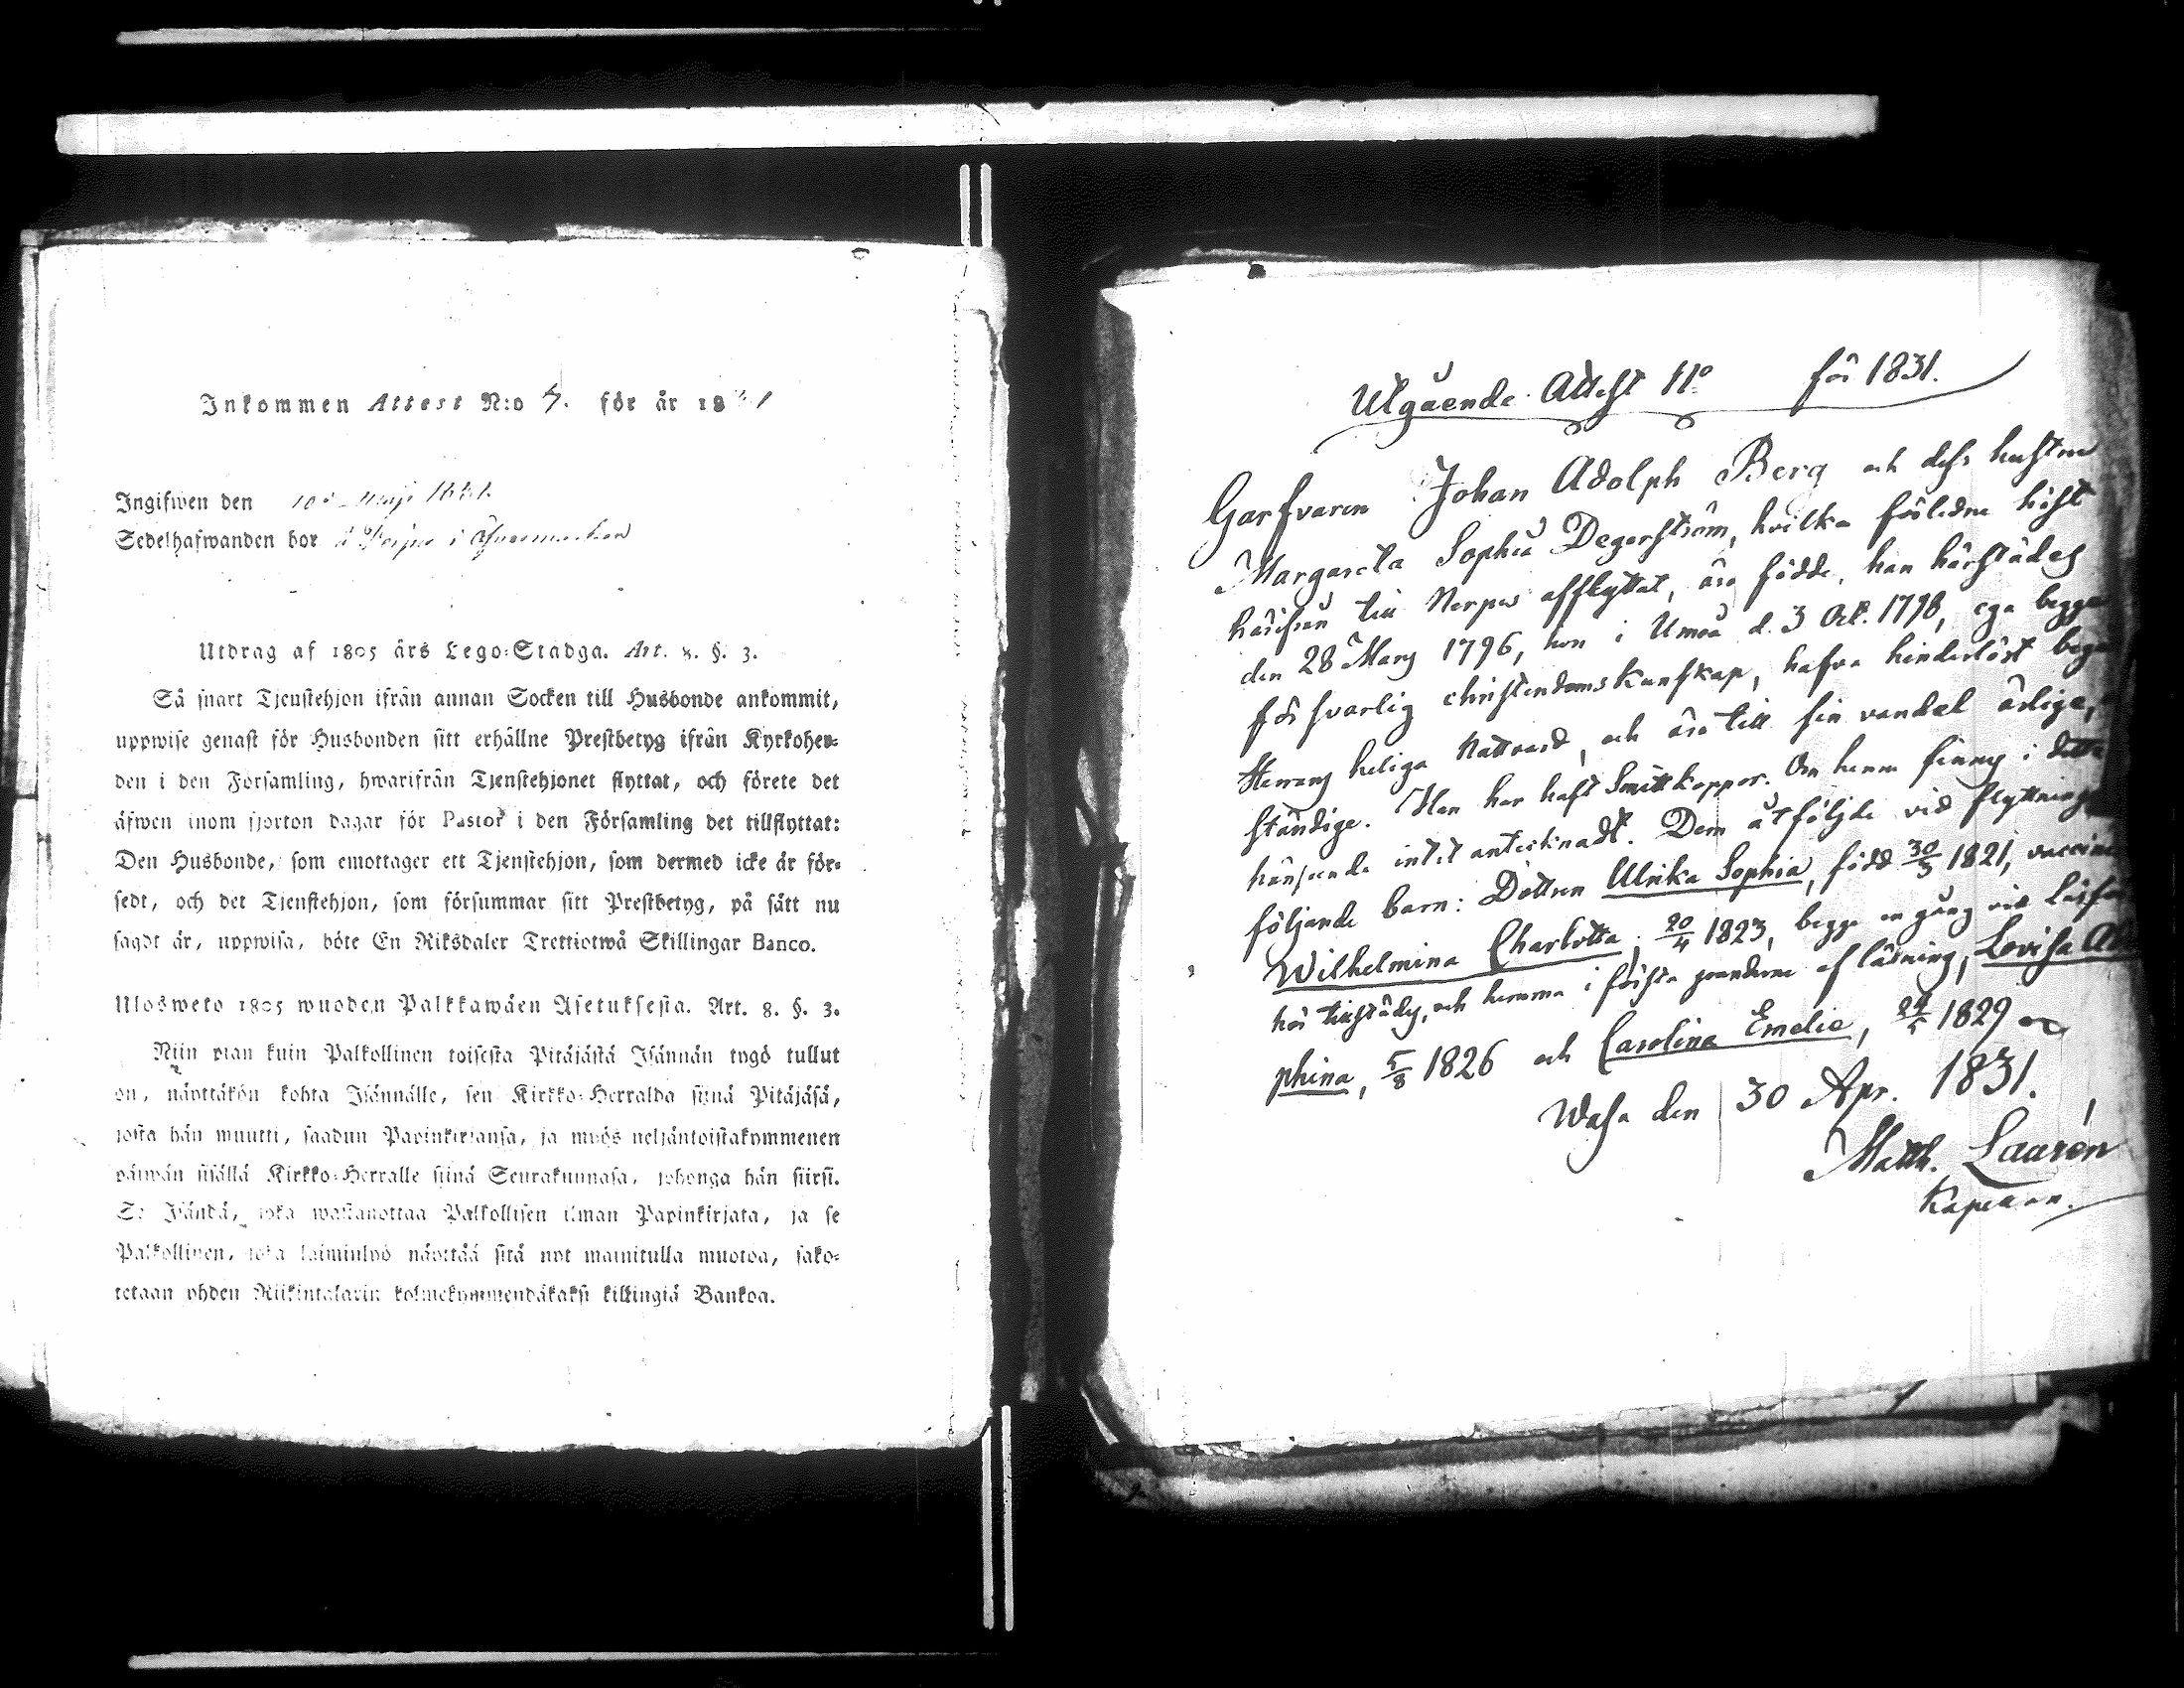 Inkommen Attest N:o 5. för år 1831
Ingifwen den 10 Maji 1831
Sedelhafwanden bor i
Utdrag af 1805 års Lego-Stadga. Art. 8. §. 3.
Så snart Tjenstehjon ifrån annan Socken till Husbonde ankommit,
uppwise genast för Husbonden sitt erhållne Prestbetyg ifrån Kyrkoher-
den i den Församling, hwarifrån Tjenstehjonet flyttat, och förete det
äfwen inom fjorton dagar för Pastor i den Församling det tillflyttat:
Den Husbonde, som emottager ett Tjenstehjon, som dermed icke är för-
sedt, och det Tjenstehjon, som försummar sitt Prestbetyg, på sätt nu
sagdt är, uppwisa, böte En Riksdaler Trettiotwå Skillingar Banco.
Ulosweto 1805 wuoden Palkkawäen Asetuksesta. Art. 8. §. 3.
Niin pian kuin Palkollinen toisesta Pitäjästä Isännän tygö tullut
on, näyttäkön kohta Isännälle, sen Kirkko-Herralda siinä Pitäjäsä,
josta hän muutti, saadun Papinkirjansa, ja myös neljäntoistakymmenen
päiwän sisällä Kirkko-Herralle siinä Seurakunnasa, johonga hän siirsi.
Se Isändä, joka wastanottaa Palkollisen ilman Papinkirjata, ja se
Palkollinen, joka laiminlyö näyttää sitä nyt mainitulla muotoa, sako-
tetaan yhden Riikintalarin kolmekymmendäkaksi killingiä Bankoa.
Utgående Attest No för 1831.
Garfvaren Johan Adolph Berg och dess hustru
Margareta Sophia Degerström, hvilka förledne höst
härifrån till Nerpes afflyttat, äro födde, han härstädes
den 28 Mars 1796, hon i Umeå d. 3 Oct. 1798, ega begge
försvarlig christendomskunskap, hafva hinderlöst begå
Herrans heliga Nattvard, och äro till sin vandel ärlige,
ständige. Han har haft Smittkoppor. Om henne finnes i detta
hänseende intet antecknadt. Dem åtföljde vid flyttning
följande barn: Dottren Ulrika Sophia, född 30/3 1821, vaccine
Wilhelmina Charlotta, 20/4 1823, begge en gång vid Läsför
hör tillstädes, och hemma i första grunderne af läsning, Lovisa Ad
phina, 5/8 1826 och Carolina Emelie, 24/5 1829
Wasa den 30 Apr. 1831.
Matth. Laurén
Kapellan.